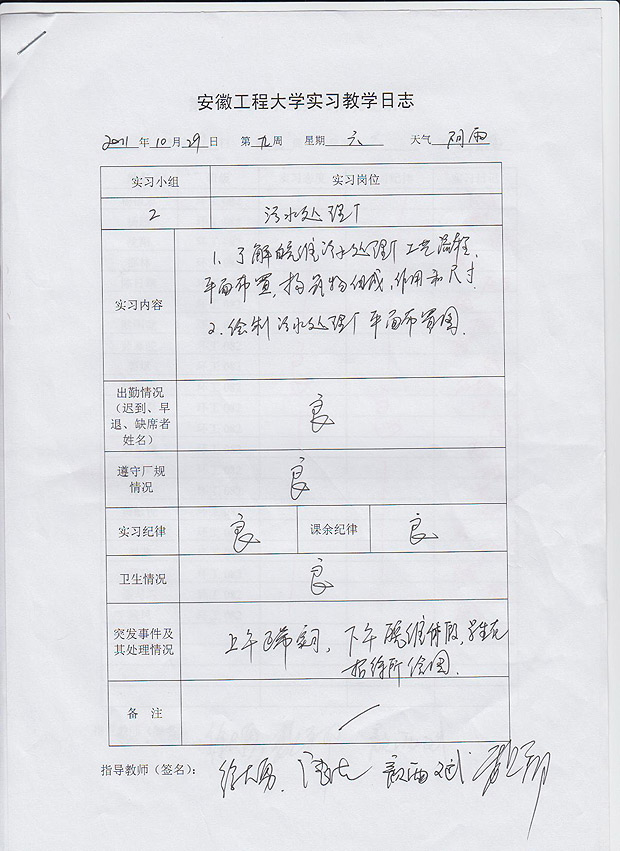 安徽工程大学实习教学日志
2011 年 10 月 29 日 第 九 周 星期 六 天气 阴雨
实习小组 实习岗位
2 污水处理厂
实习内容
1. 了解皖维污水处理厂工艺流程,
平面布置,构筑物组成,作用和尺寸.
2. 绘制污水处理厂平面布置图.
出勤情况
(迟到、早
退、缺席者
姓名)
良
遵守厂规
情况
良
实习纪律 良 课余纪律 良
卫生情况 良
突发事件及
其处理情况
上午正常实习,下午皖维休假,学生在
招待所绘图.
备 注 /
指导教师(签名):